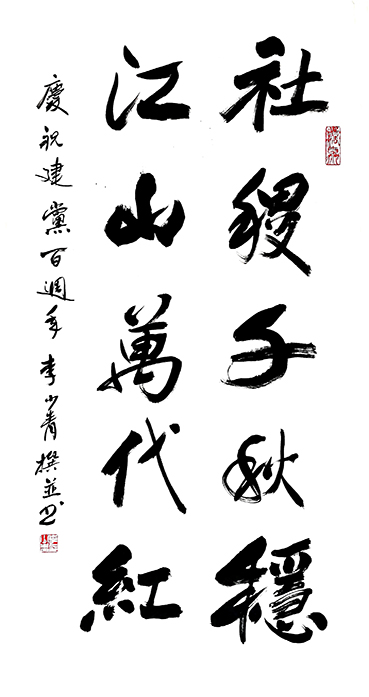 社稷千秋穩
江山萬代紅
慶祝建黨百週年李少青撰並书